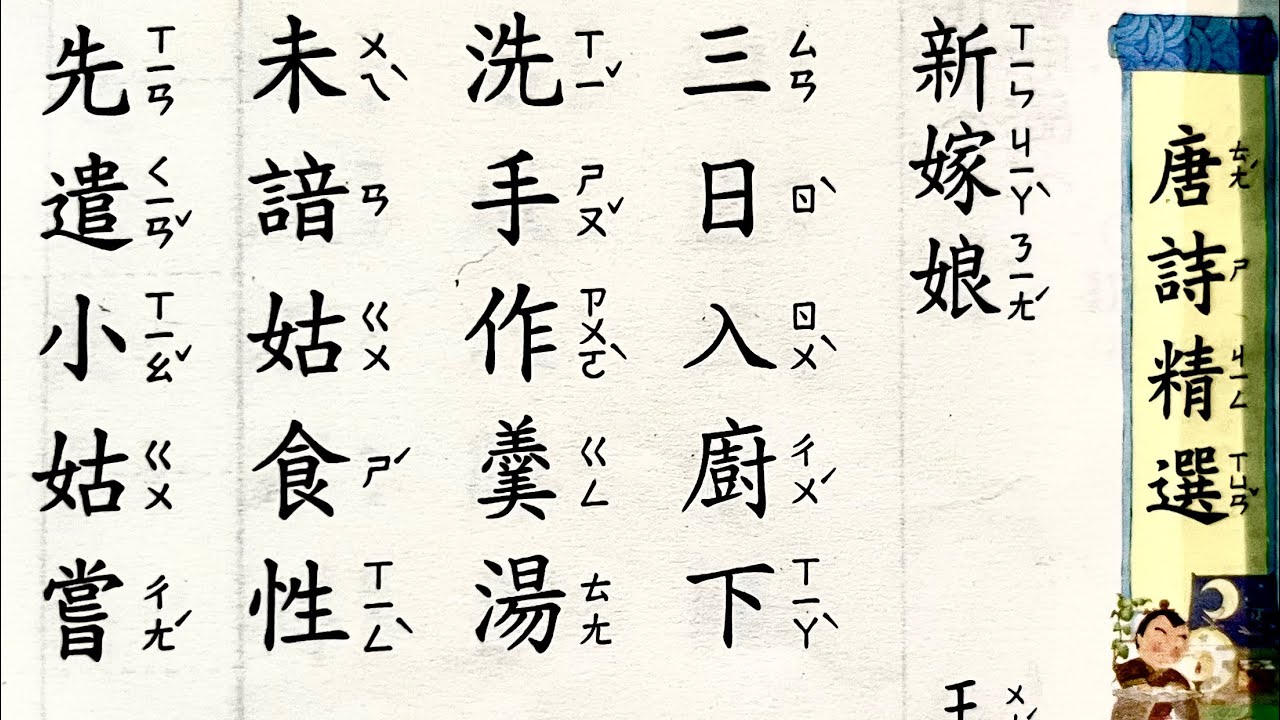 唐詩精選
新嫁娘
王
三日入廚下
洗手作羹湯
未諳姑食性
先遣小姑嘗